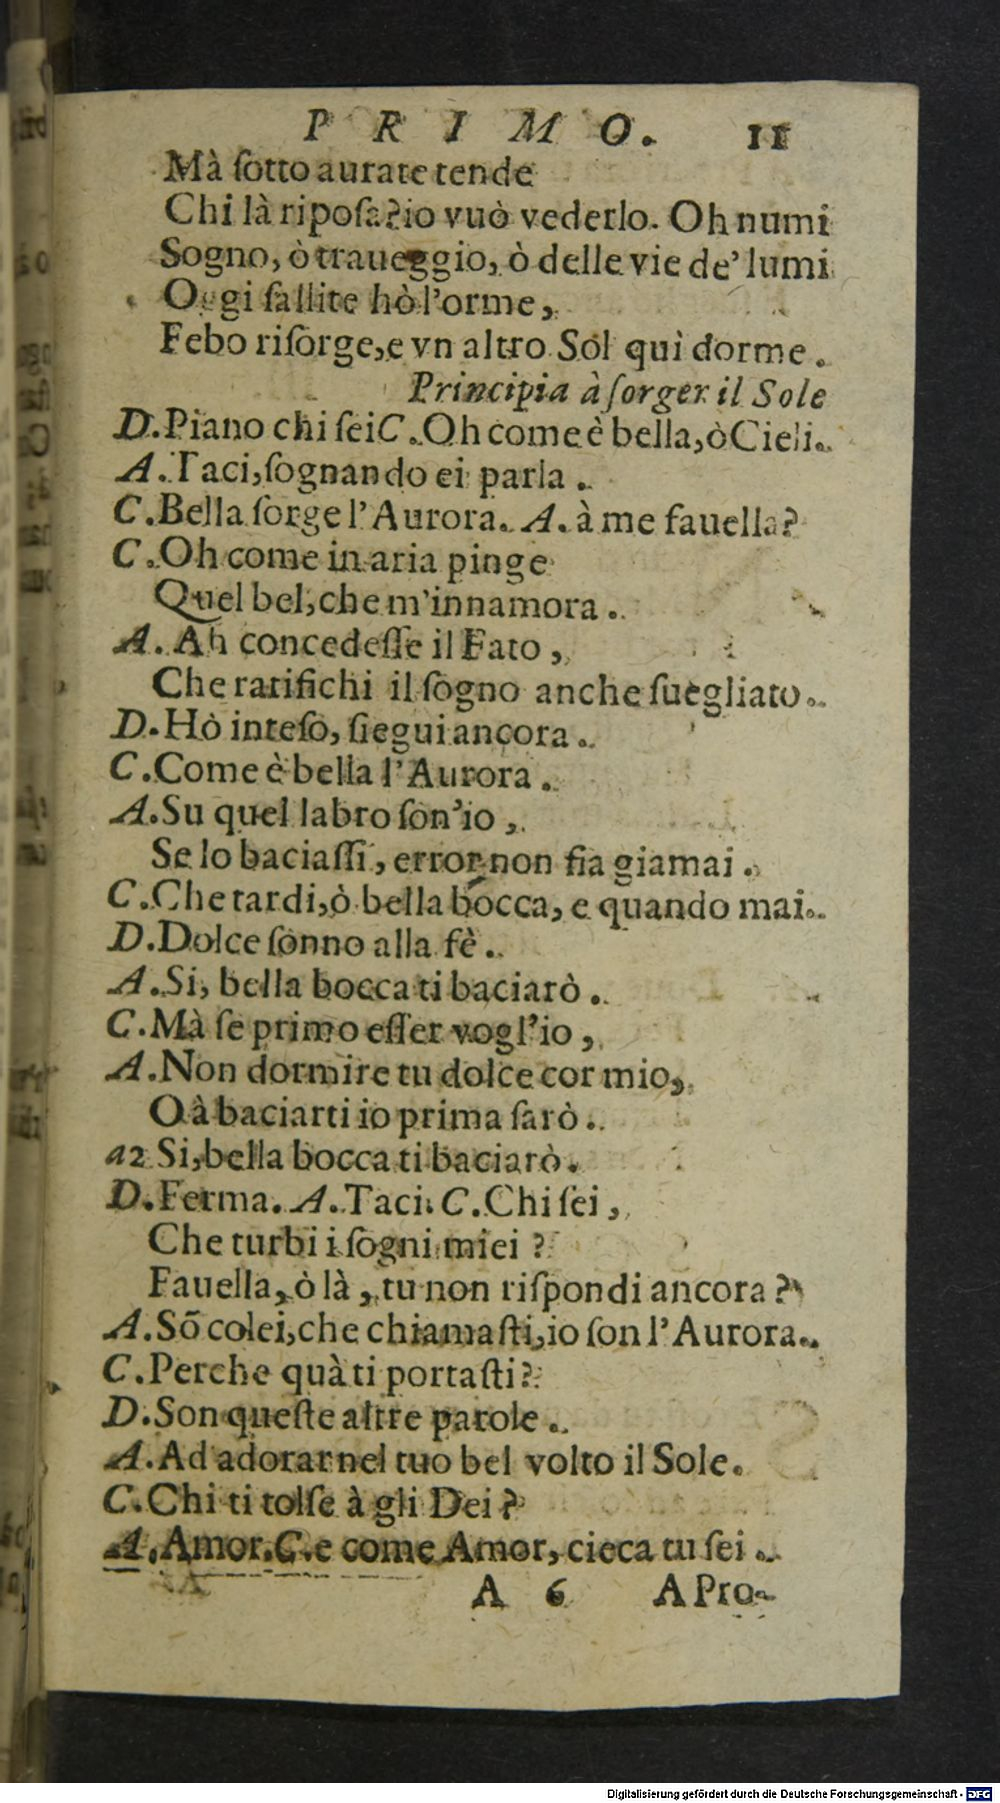 P R I M O. 11
Mà ſotto aurate tende
Chi là ripoſa? io vuò vederlo. Oh numi
Sogno, ò traueggio, ò delle vie de' lumi
Oggi fallite hò l'orme,
Febo riſorge, e vn altro Sol quì dorme.
Principia à ſorger il Sole
D. Piano chi ſei C. Oh come è bella, ò Cieli.
A. Taci, ſognando ei parla.
C. Bella ſorge l'Aurora. A. à me fauella?
C. Oh come in aria pinge
Quel bel, che m'innamora.
A. Ah concedeſſe il Fato,
Che ratifichi il ſogno anche ſuegliato.
D. Hò inteſo, ſiegui ancora.
C. Come è bella l'Aurora.
A. Su quel labro ſon'io,
Se lo baciaſſi, error non fia giamai.
C. Che tardi, ò bella bocca, e quando mai.
D. Dolce ſonno alla fè.
A. Si, bella bocca ti baciarò.
C. Mà ſe primo eſſer vogl'io,
A. Non dormire tu dolce cor mio,
O à baciarti io prima ſarò.
a2 Si, bella bocca ti baciarò.
D. Ferma. A. Taci. C. Chi ſei,
Che turbi i ſogni miei?
Fauella, ò là, tu non riſpondi ancora?
A. Sõ colei, che chiamaſti, io ſon l'Aurora.
C. Perche quà ti portaſti?
D. Son queſte altre parole.
A. Ad adorar nel tuo bel volto il Sole.
C. Chi ti tolſe à gli Dei?
A. Amor. C. e come Amor, cieca tu ſei.
A 6 A Pro-
Digitalisierung gefördert durch die Deutsche Forschungsgemeinschaft - DFG